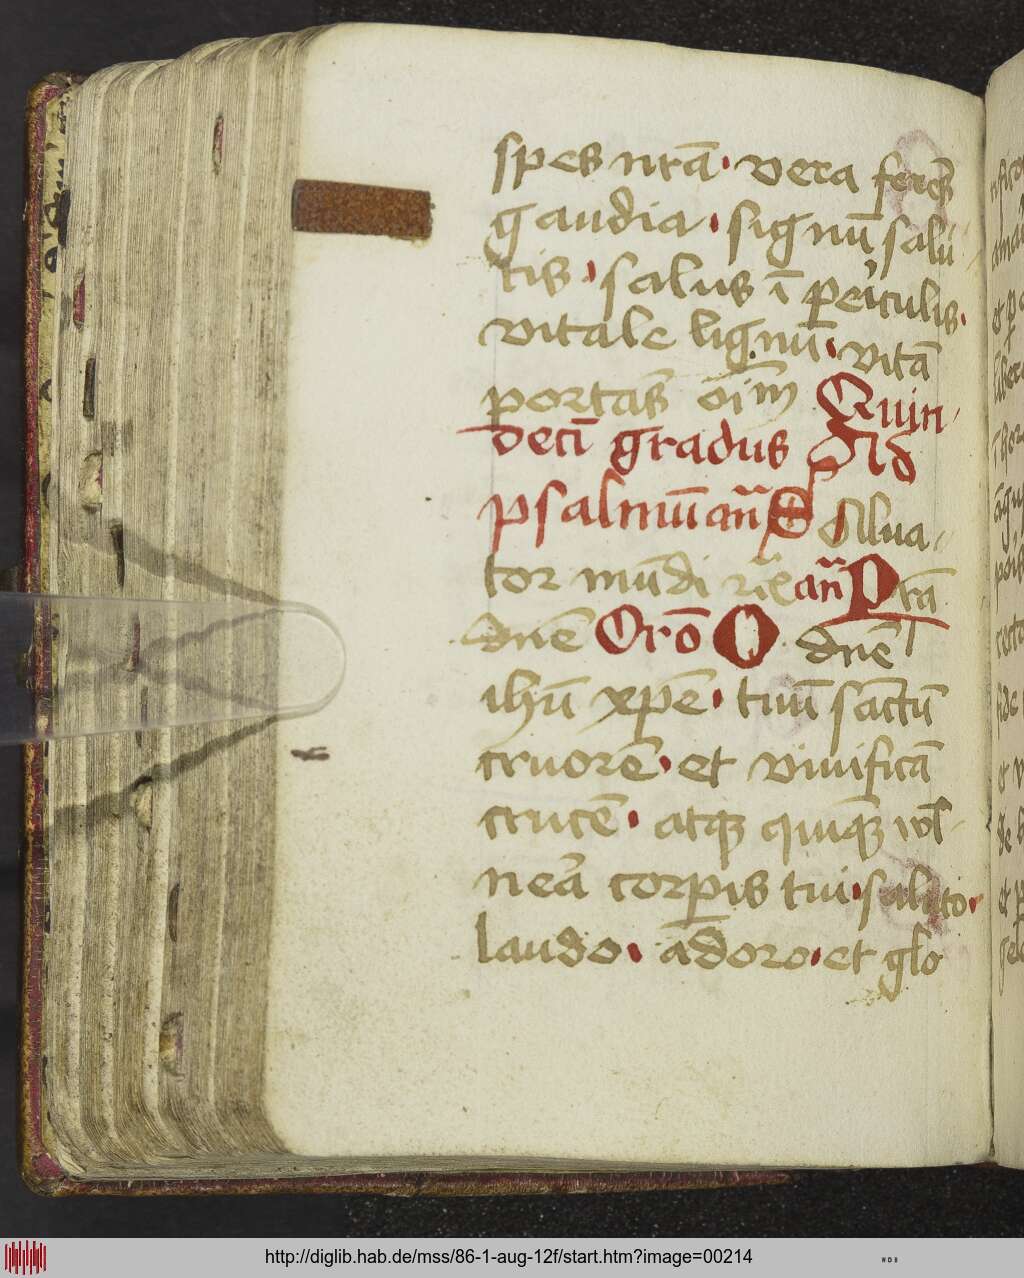 spes nrā · vera ferēs
gaudia · signū salu
tis · salus ī periculis ·
vitale lignū · vitā
portās oīm Quin
decī gradus
psalmū an̄ Salua
tor mūdi an̄ P
dn̄e Orō O dn̄e
ihū xp̄e · tuū sāctū
cruorē · et viuificā
crucē · atq quiq vl
nera corpis tui · saluto ·
laudo · adoro · et glo
http://diglib.hab.de/mss/86-1-aug-12f/start.htm?image=00214